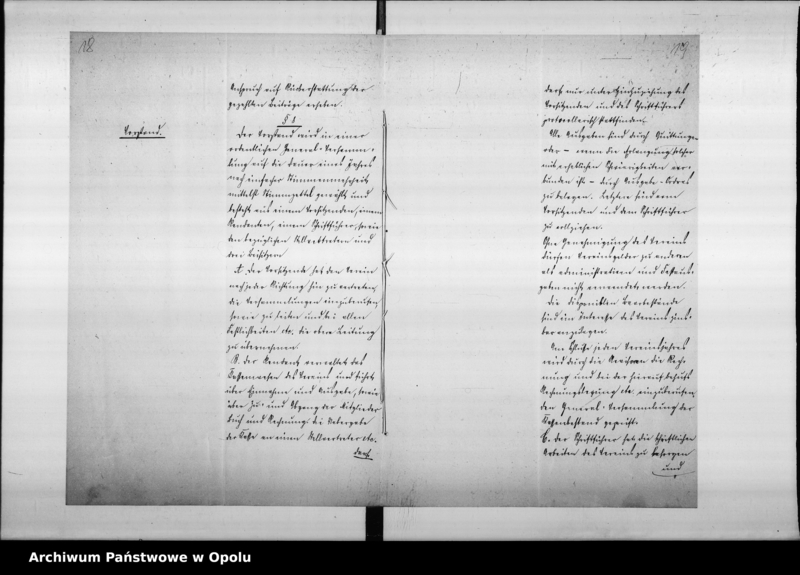 18
Anspruch auf Rückerstattung der
gezahlten Beiträge erheben.
Vorstand.
§ 8
Der Vorstand wird in einer
ordentlichen General-Versamm-
lung auf die Dauer eines Jahres
nach einfacher Stimmenmehrheit
mittelst Stimmzettel gewählt und
besteht aus einem Vorsitzenden, einem
Rendanten, einem Schriftführer, sowie
den bezüglichen Stellvertretern und
drei Beisitzern
A. Der Vorsitzende hat den Verein
nach jeder Richtung hin zu vertreten,
die Versammlungen einzuberufen
sowie zu leiten und bei allen
Festlichkeiten etc. die obere Leitung
zu übernehmen.
B. Der Rendant verwaltet das
Kassenwesen des Vereins und führt
über Einnahme und Ausgabe, sowie
über Zu- und Abgang der Mitglieder
Buch und Rechnung. Die Uebergabe
der Kasse an einen Stellvertreter etc.
darf
darf nur unter Hinzuziehung des
Vorsitzenden und des Schriftführers
protokollarisch stattfinden.
Alle Ausgaben sind durch Quittungen
oder – wenn die Erlangung solcher
mit erheblichen Schwierigkeiten ver-
bunden ist – durch Ausgabe-Ordres
zu belegen. Letztere sind vom
Vorsitzenden und dem Schriftführer
zu vollziehen.
Ohne Genehmigung des Vereins
dürfen Vereinsgelder zu anderen
als administrativen und
nicht verwendet werden.
Die disponiblen Baarbestände
sind im Interesse des Vereins zins-
bar anzulegen.
Am Schluß jeden Vereinsjahres
wird durch die Revisoren die Rech-
nung und bei der hierauf behufs
Rechnungslegung etc. einzuberufen-
den General-Versammlung der
Kassenbestand geprüft.
C. Der Schriftführer hat die schriftlichen
Arbeiten des Vereins zu besorgen
und
Archiwum Państwowe w Opolu